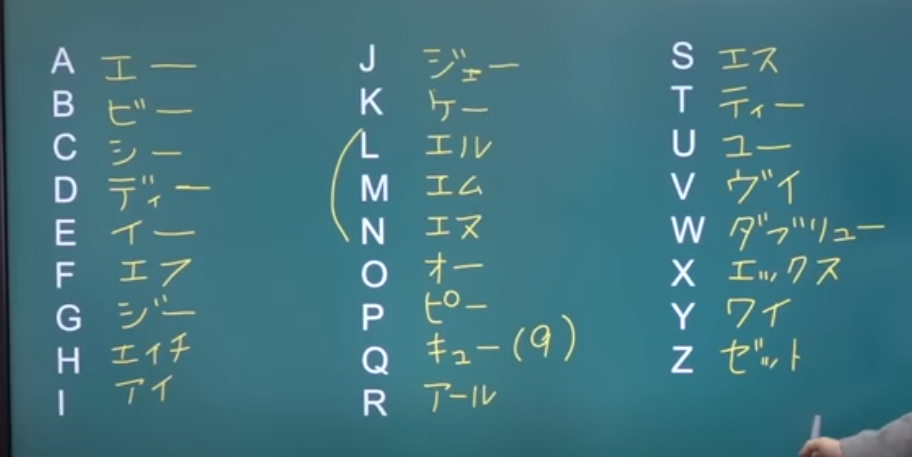 A エー
B ビー
C シー
D ディー
E イー
F エフ
G ジー
H エイチ
I アイ
J ジェー
K ケー
L エル
M エム
N エヌ
O オー
P ピー
Q キュー(9)
R アール
S エス
T ティー
U ユー
V ヴイ
W ダブリュー
X エックス
Y ワイ
Z ゼット